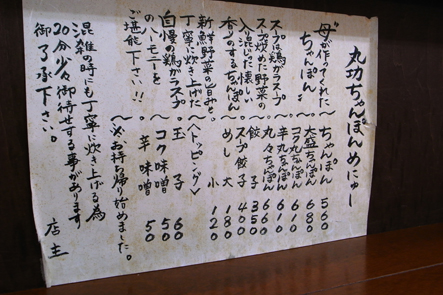 丸功ちゃんぽんめにゅー
"母が作ってくれた
ちゃんぽん。"
スープは鶏がらスープ。
スープで炊めた野菜の
入り混じった懐しい
香りのするちゃんぽん
新鮮野菜の旨みと。
丁寧に炊き上げた
自慢の鶏がらスープ。
のハーモニーを
ご堪能下さい!!
~ちゃんぽん 560
。大盛ちゃんぽん 680
。コク丸ちゃんぽん 610
。辛丸ちゃんぽん 610
。丸々ちゃんぽん 660
。餃子 350
。スープ餃子 400
。めし 大 180
小 120
~〈トッピング〉
。玉子 60
。コク味噌 50
。辛味噌 50
~※お持ち帰り始めました。
混雑の時にも丁寧に炊き上げる為
20分少々御待せする事があります
御了承下さい。
店主